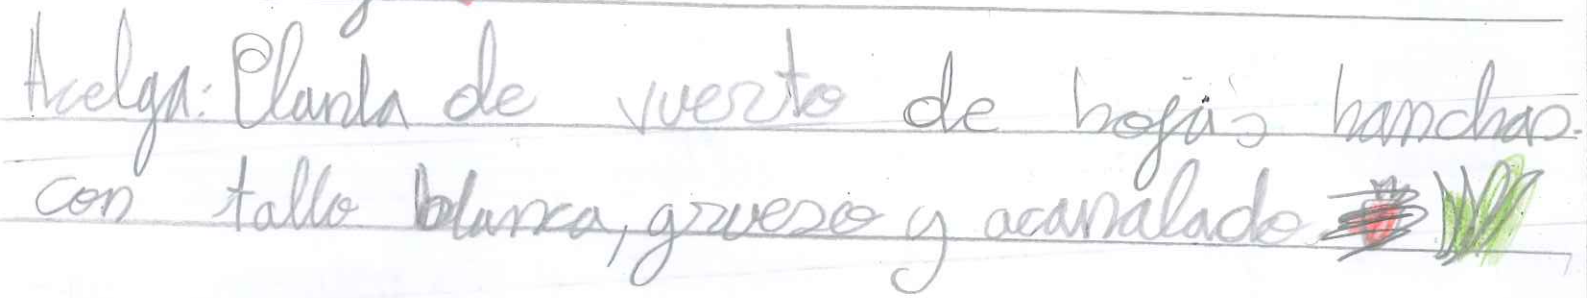 Acelga: Planta de vuerto de hojas hanchas.
con tallo blanca, grueso y acanalado